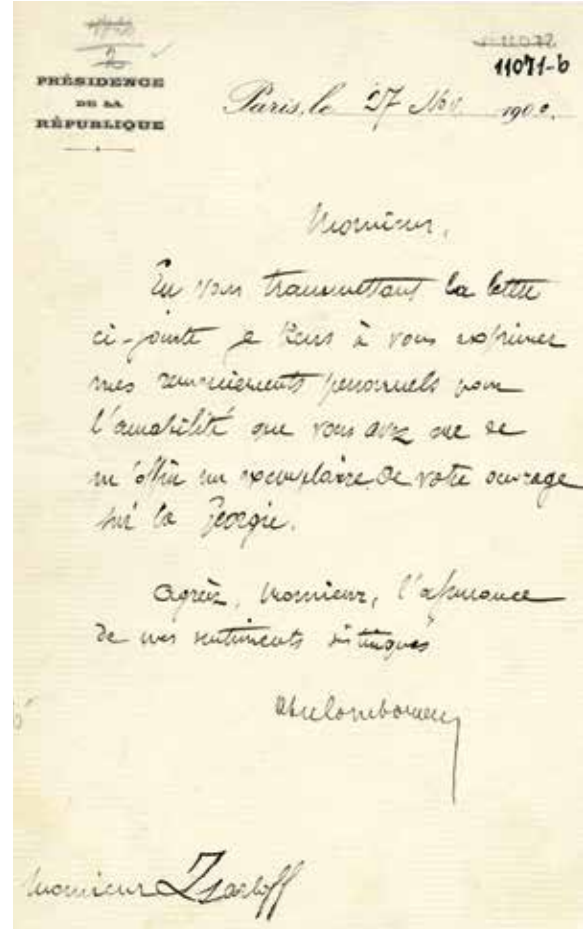 11071-b
PRÉSIDENCE
DE LA
RÉPUBLIQUE
Paris, le 27 Nov. 1900.
Monsieur,
En vous transmettant la lettre
ci-jointe je tiens à vous exprimer
mes remerciements personnels pour
l'amabilité que vous avez eue de
m'offrir un exemplaire de votre ouvrage
sur la Georgie.
Agréez, Monsieur, l'assurance
de mes sentiments distingués
Monsieur